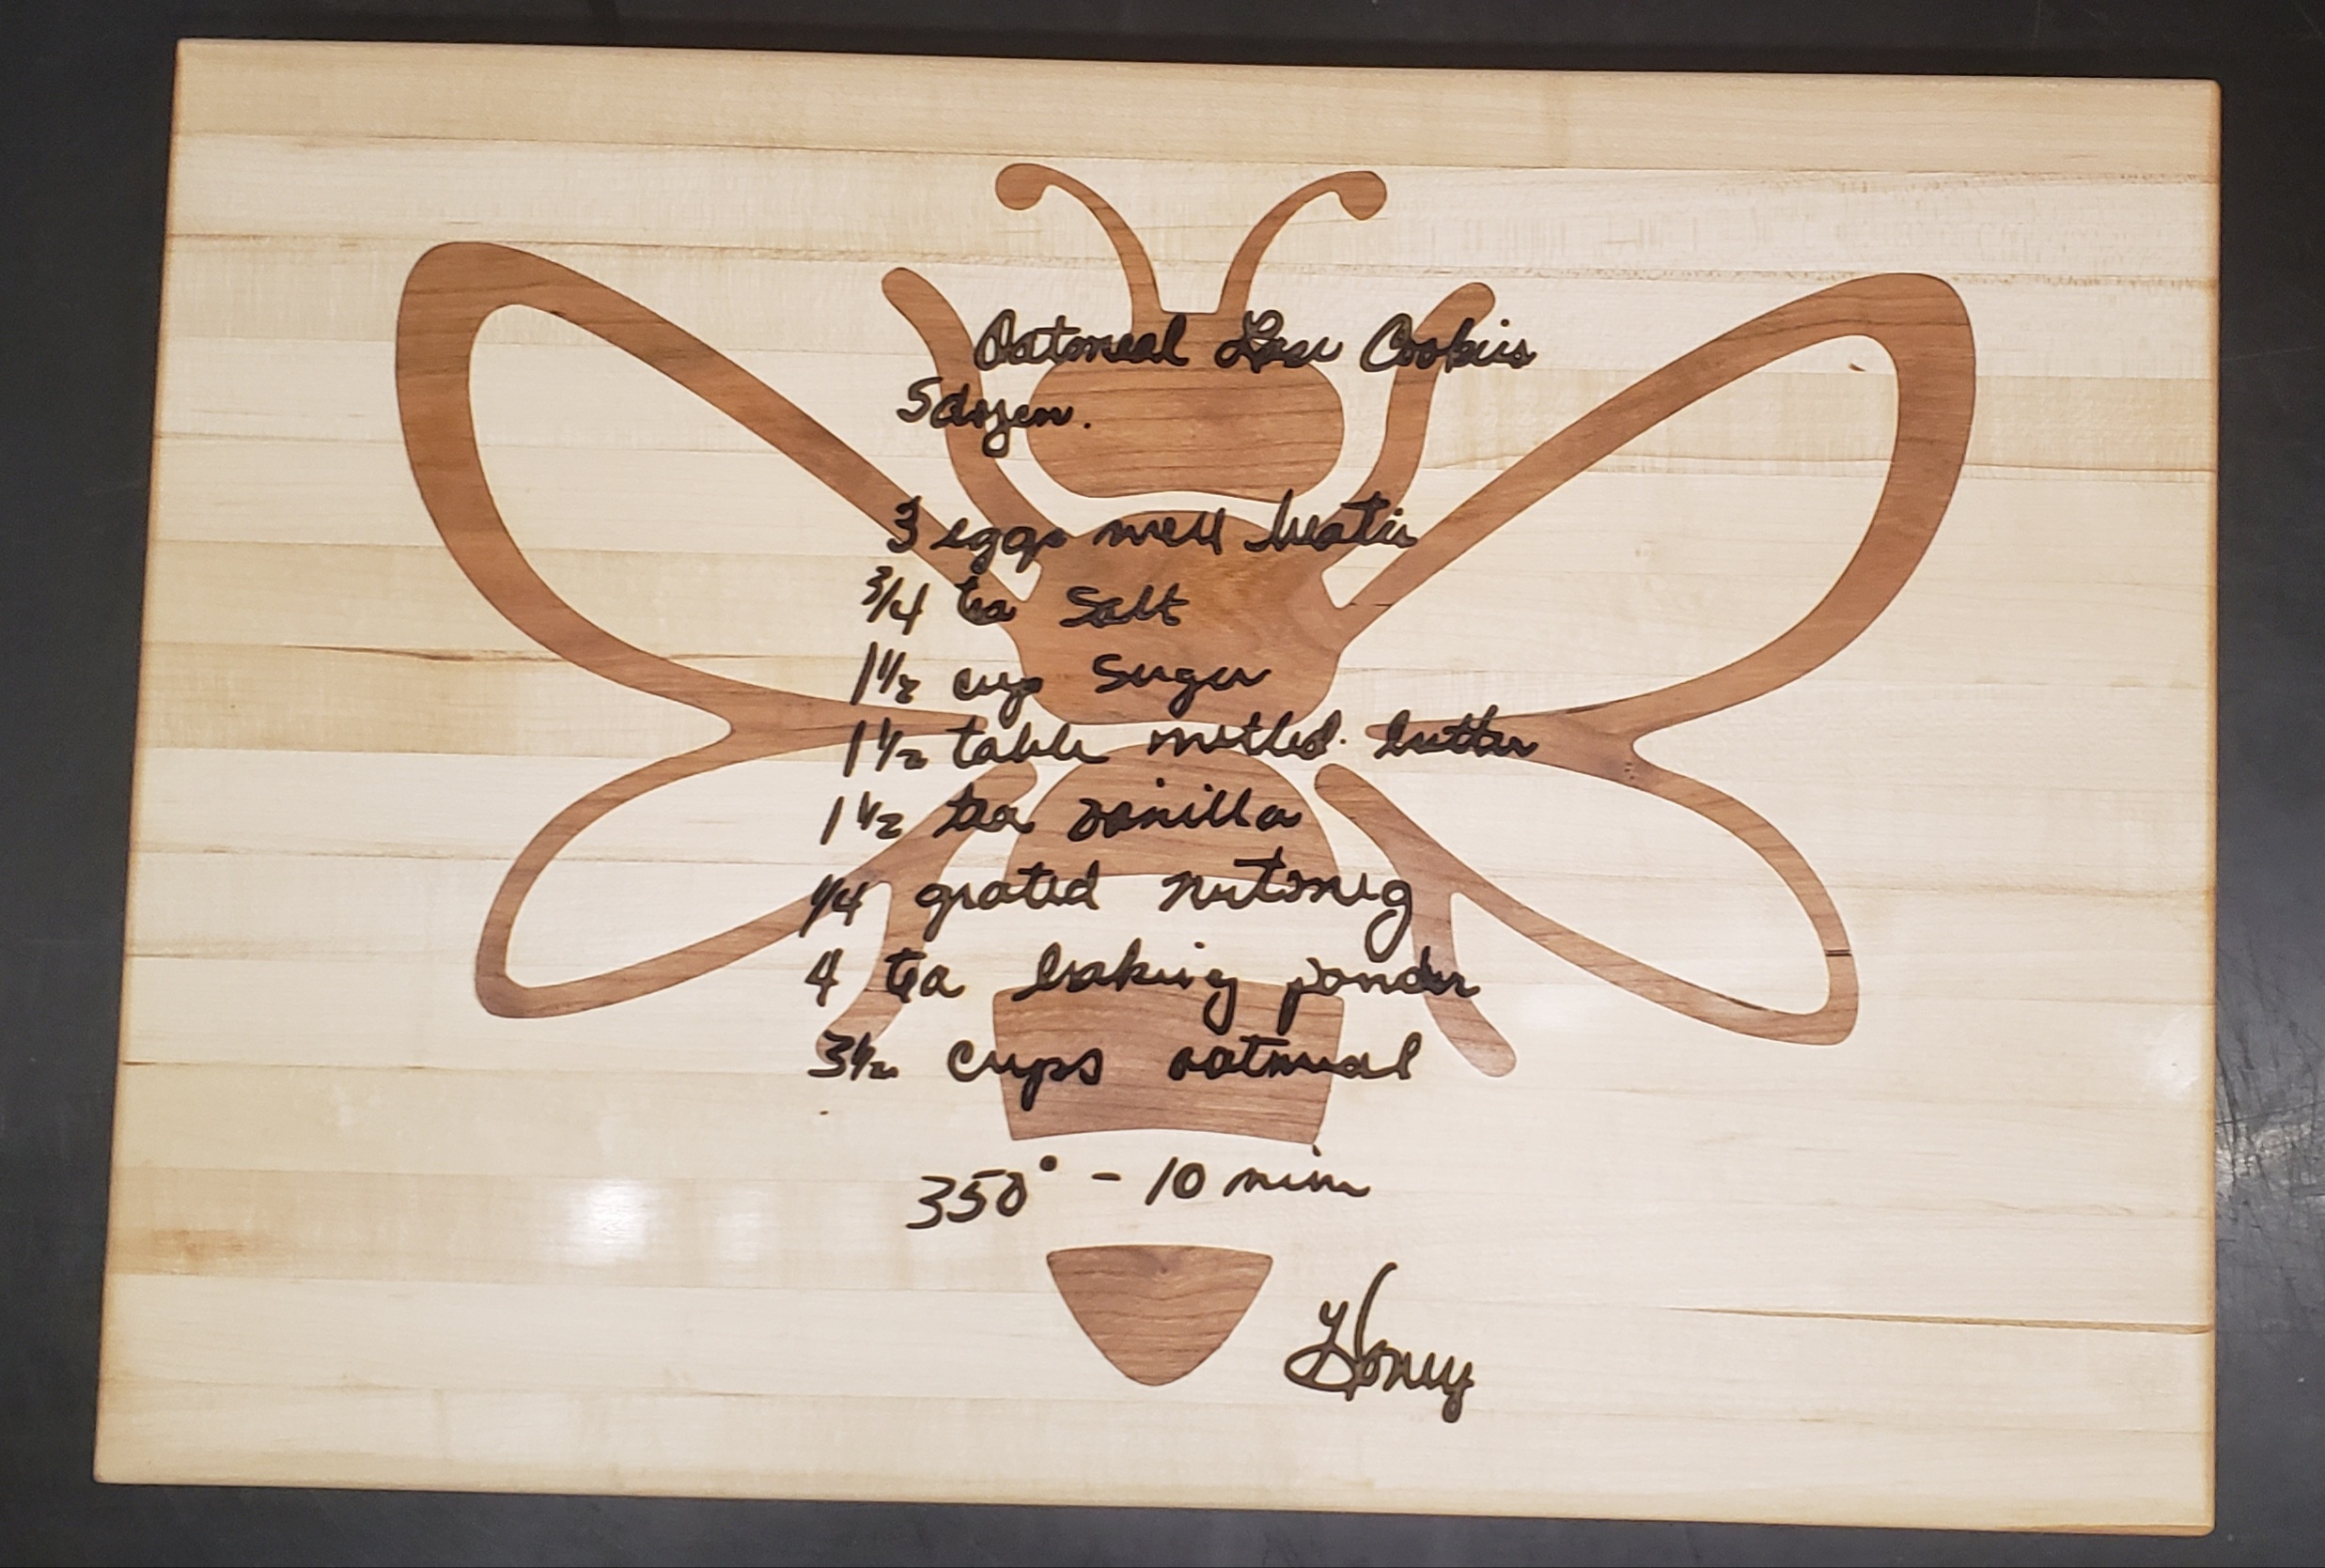 Oatmeal Lace Cookies
5 dozen.
3 eggs well beaten
3/4 tea Salt
1 1/2 cup Suger
1 1/2 table melted butter
1 1/2 tea vanilla
1/4 grated nutmeg
4 tea baking powder
3 1/2 cups oatmeal
350° - 10 min
Honey